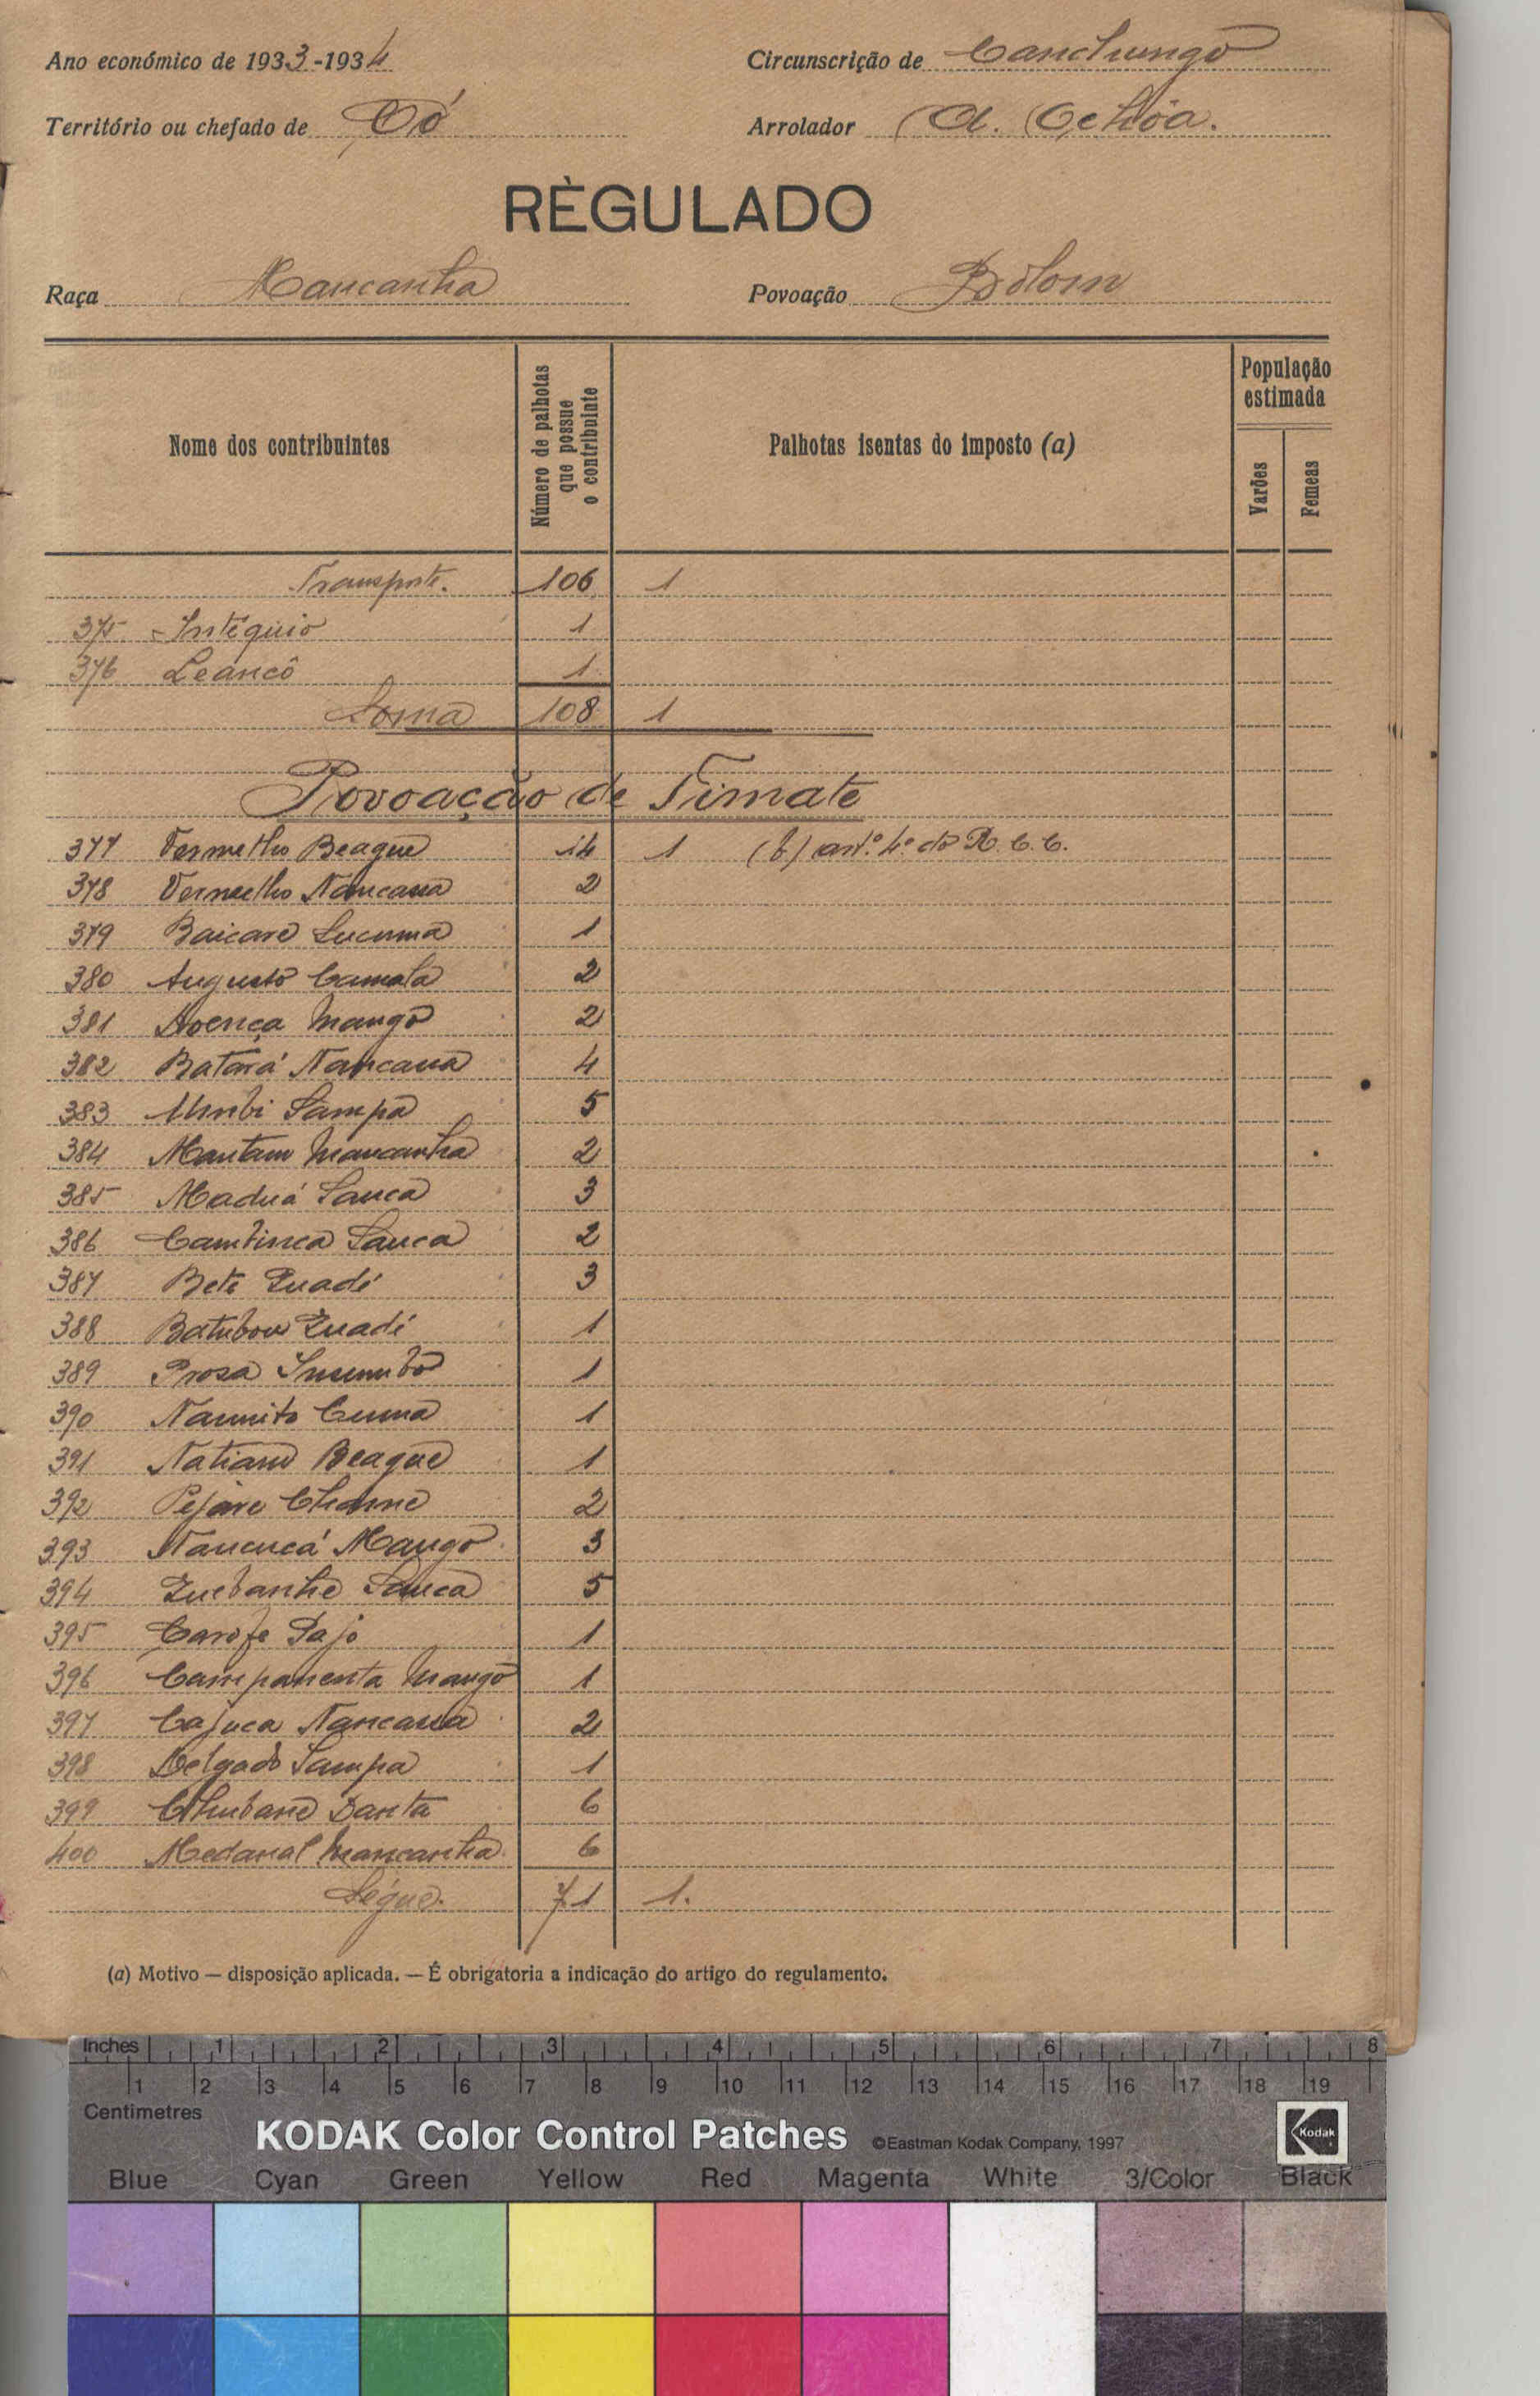 Ano económico de 1933-1934
Circunscrição de Canchungo
Território ou chefado de Có
Arrolador A. Ochôa.
RÈGULADO
Raça Mancanha
Povoação Bolom
Nome dos contribuintes
Número de palhotas que possue o contribuinte
Palhotas isentas do imposto (a)
População estimada
Varões
Femeas
Transporte. 106 1
375 Intéquio 1
376 Leancô 1
Soma 108 1
Povoação de Timate
377 Vermelho Beague 14 1 (b) art.º 4.º do R. C. C.
378 Vermelho Nancassa 2
379 Baicare Lucuma 1
380 Augusto Camala 2
381 Doença Mango 2
382 Batará Nancassa 4
383 Umbi Sampa 5
384 Mantam Mancanha 2
385 Maduá Sanca 3
386 Cambinca Sanca 2
387 Bete Quadé 3
388 Quadé 1
389 Prosa 1
390 Naunito Cuma 1
391 Beague 1
392 2
393 Nancucá Mango 3
394 Quebanhe Sanca 5
395 1
396 Campanenta Mango 1
397 Cajuca Nancassa 2
398 Delgado Sampa 1
399 Danta 6
400 Medanal Mancanha 6
Segue. 71 1.
(a) Motivo — disposição aplicada. — É obrigatoria a indicação do artigo do regulamento.
Inches 1 2 3 4 5 6 7 8
1 2 3 4 5 6 7 8 9 10 11 12 13 14 15 16 17 18 19
Centimetres
KODAK Color Control Patches ©Eastman Kodak Company, 1997 Kodak
Blue Cyan Green Yellow Red Magenta White 3/Color Black